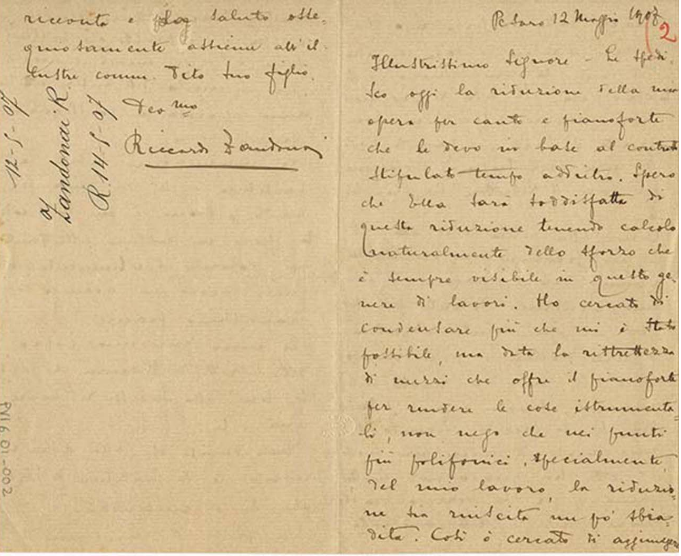 Pesaro 12 Maggio 1907
2
Illustrissimo Signore - Le spedi-
sco oggi la riduzione della mia
opera per canto e pianoforte
che le devo in base al contratto
stipulato tempo addietro. Spero
che Ella sarà soddisfatta di
questa riduzione tenendo calcolo
naturalmente dello sforzo che
è sempre visibile in questo ge-
nere di lavori. Ho cercato di
condensare più che mi è stato
possibile, ma data la ristrettezza
di mezzi che offre il pianoforte
per rendere le cose istrumenta-
li, non nego che nei punti
più polifonici, specialmente,
del mio lavoro, la riduzio-
ne sia riuscita un pò sbia-
dita. Così ò cercato di aggiungere
e saluto osse-
quiosamente assieme all'il-
lustre comm. Tito suo figlio.
Devmo
Riccardo Zandonai
12-5-07
Zandonai R.
R 14-5-07